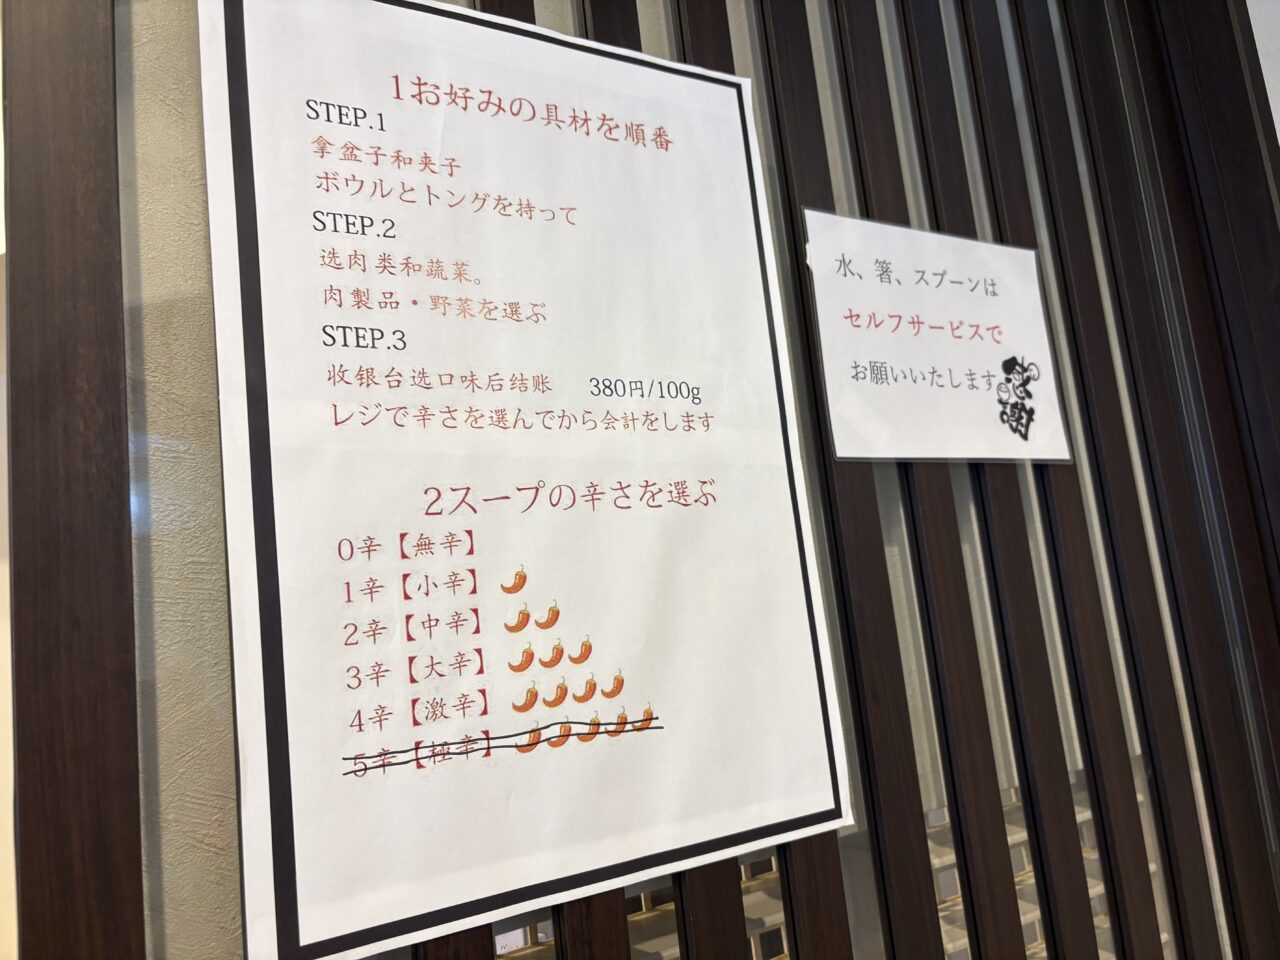 1お好みの具材を順番
STEP.1
拿盆子和夹子
ボウルとトングを持って
STEP.2
选肉类和蔬菜。
肉製品・野菜を選ぶ
STEP.3
收银台选口味后结账 380円/100g
レジで辛さを選んでから会計をします
2スープの辛さを選ぶ
0辛【無辛】
1辛【小辛】
2辛【中辛】
3辛【大辛】
4辛【激辛】
5辛【極辛】
水、箸、スプーンは
セルフサービスで
お願いいたします
感謝